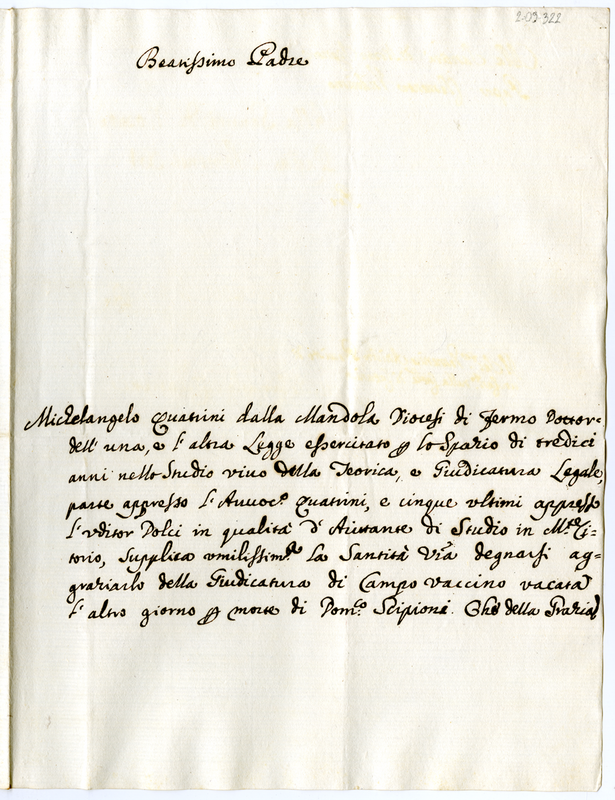 2-09-322
Beatissimo Padre
Michelangelo Quatrini dalla Mandola Diocesi di Fermo Dottor=
dell' una, e l' altra Legge essercitato p lo Spazio di tredici
anni nello Studio vivo della Teorica, e Giudicatura Legale,
parte appresso l' Avvoc.o Quatrini, e cinque ultimi appresso
l' Uditor Dolci in qualità d' Aiutante di Studio in M.te Ci=
torio, Supplica umilissim.te La Santità Vra degnarsi ag=
graziarlo della Giudicatura di Campo Vaccino vacata
l' altro giorno p morte di Dom.co Scipioni. Che della Grazia